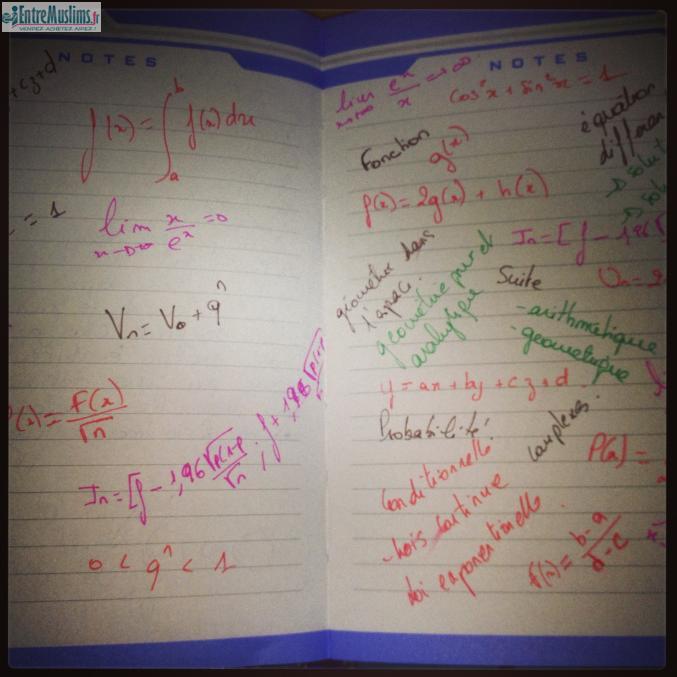 EntreMuslims.fr
VENDEZ ACHETEZ AIDEZ !
NOTES
+cz+d
f(x) = ∫_a^b f(x) dx
= 1
lim x→+∞ x/e^x = 0
Vn = V0 + q^n
(x) = f(x)/√n
In = [f - 1,96 √p(1-p)/√n ; f + 1,96 √p(1-p)
0 < q^n < 1
NOTES
lim x→+∞ e^x/x = +∞
cos²x + sin²x = 1
équation
différen
Fonction
g(x)
f(x) = 2g(x) + h(x)
→ solut
→ solu
In = [f - 1,96 √
géométrie dans
l'espace
géométrie pur et
analytique
Suite
Un = 2
- arithmétique
- géométrique
y = ax + by + cz + d
Probabilité
conditionnelle
complexes.
P(A) =
- lois continue
loi exponentielle
f(x) = b-a/d-c